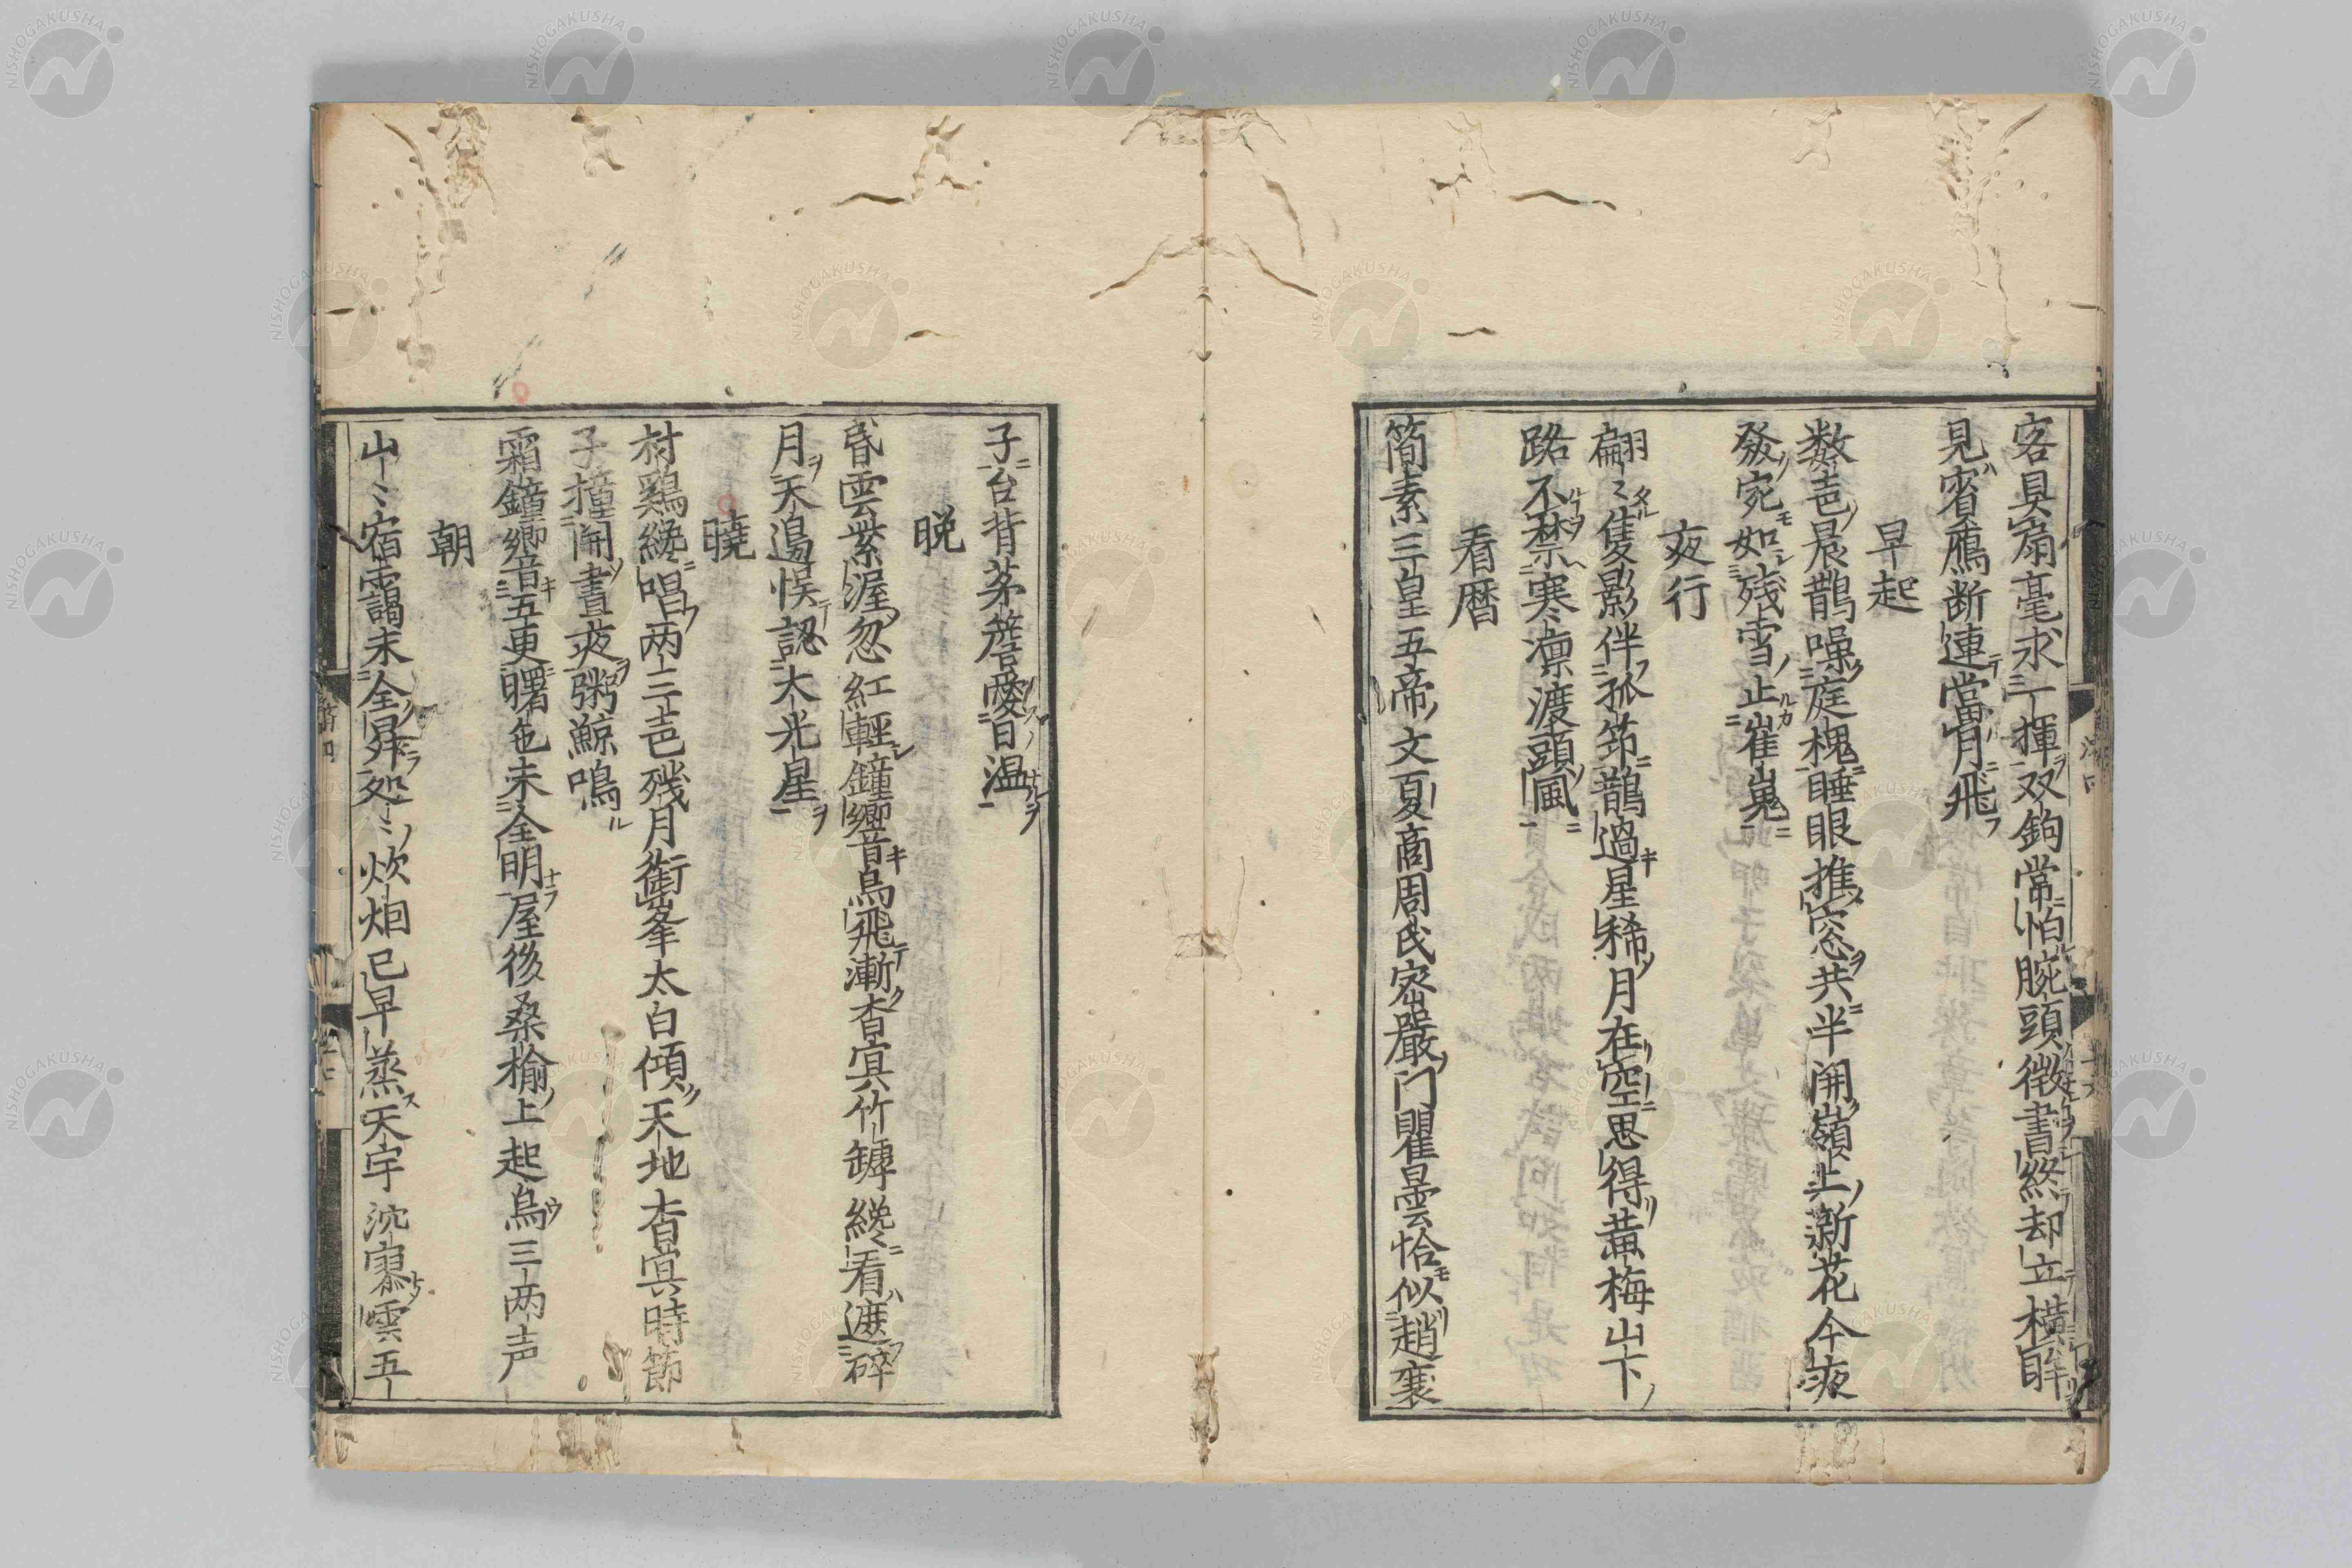 客具扇毫求一揮双鉤常怕腕頭徴書終却立横眸
見賓鴈断連當月飛
早起
数声晨鵲噪庭槐睡眼推窓共半開嶺上新花今夜
發宛如残雪止崔嵬
夜行
翩〻隻影伴孤筇鵲過星稀月在空思得黄梅山下
路不禁寒凛渡頭風
看暦
簡素三皇五帝文夏商周氏密嚴門瞿曇恰似趙襄
子台背茅簷愛日温
晩
昏雲紫渥忽紅輕鐘響鳥飛漸杳冥竹罅纔看遮碎
月天邉悞認太光星
曉
村鶏纔唱両三声残月銜峯太白傾天地杳冥時節
子撞開晝夜粥鯨鳴
霜鐘響五更曙色未全明屋後桑楡上起烏三両声
朝
山〻宿靄未全昇処〻炊烟已早蒸天宇沈寥雲五
NISHOGAKUSHA